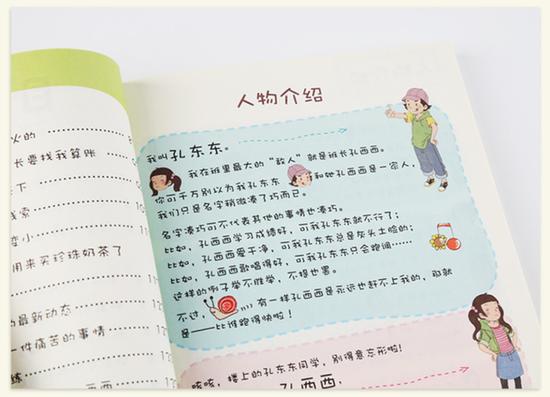 火的
长要找我算账
天下
线索
变小
用来买珍珠奶茶了
的最新动态
一件痛苦的事情
练
西西
人物介绍
我叫孔东东。
我在班里最大的“敌人”就是班长孔西西。
你可千万别以为我孔东东和她孔西西是一家人，
我们只是名字稍微凑了巧而已。
名字凑巧可不代表其他的事情也凑巧。
比如，孔西西学习成绩好，可我孔东东就不行了；
比如，孔西西爱干净，可我孔东东总是灰头土脸的；
比如，孔西西歌唱得好，可我孔东东只会跑调……
这样的例子举不胜举，不提也罢。
不过，有一样孔西西是永远也赶不上我的，那就
是——比谁跑得快啦！
咳咳，楼上的孔东东同学，别得意忘形啦！
孔西西，